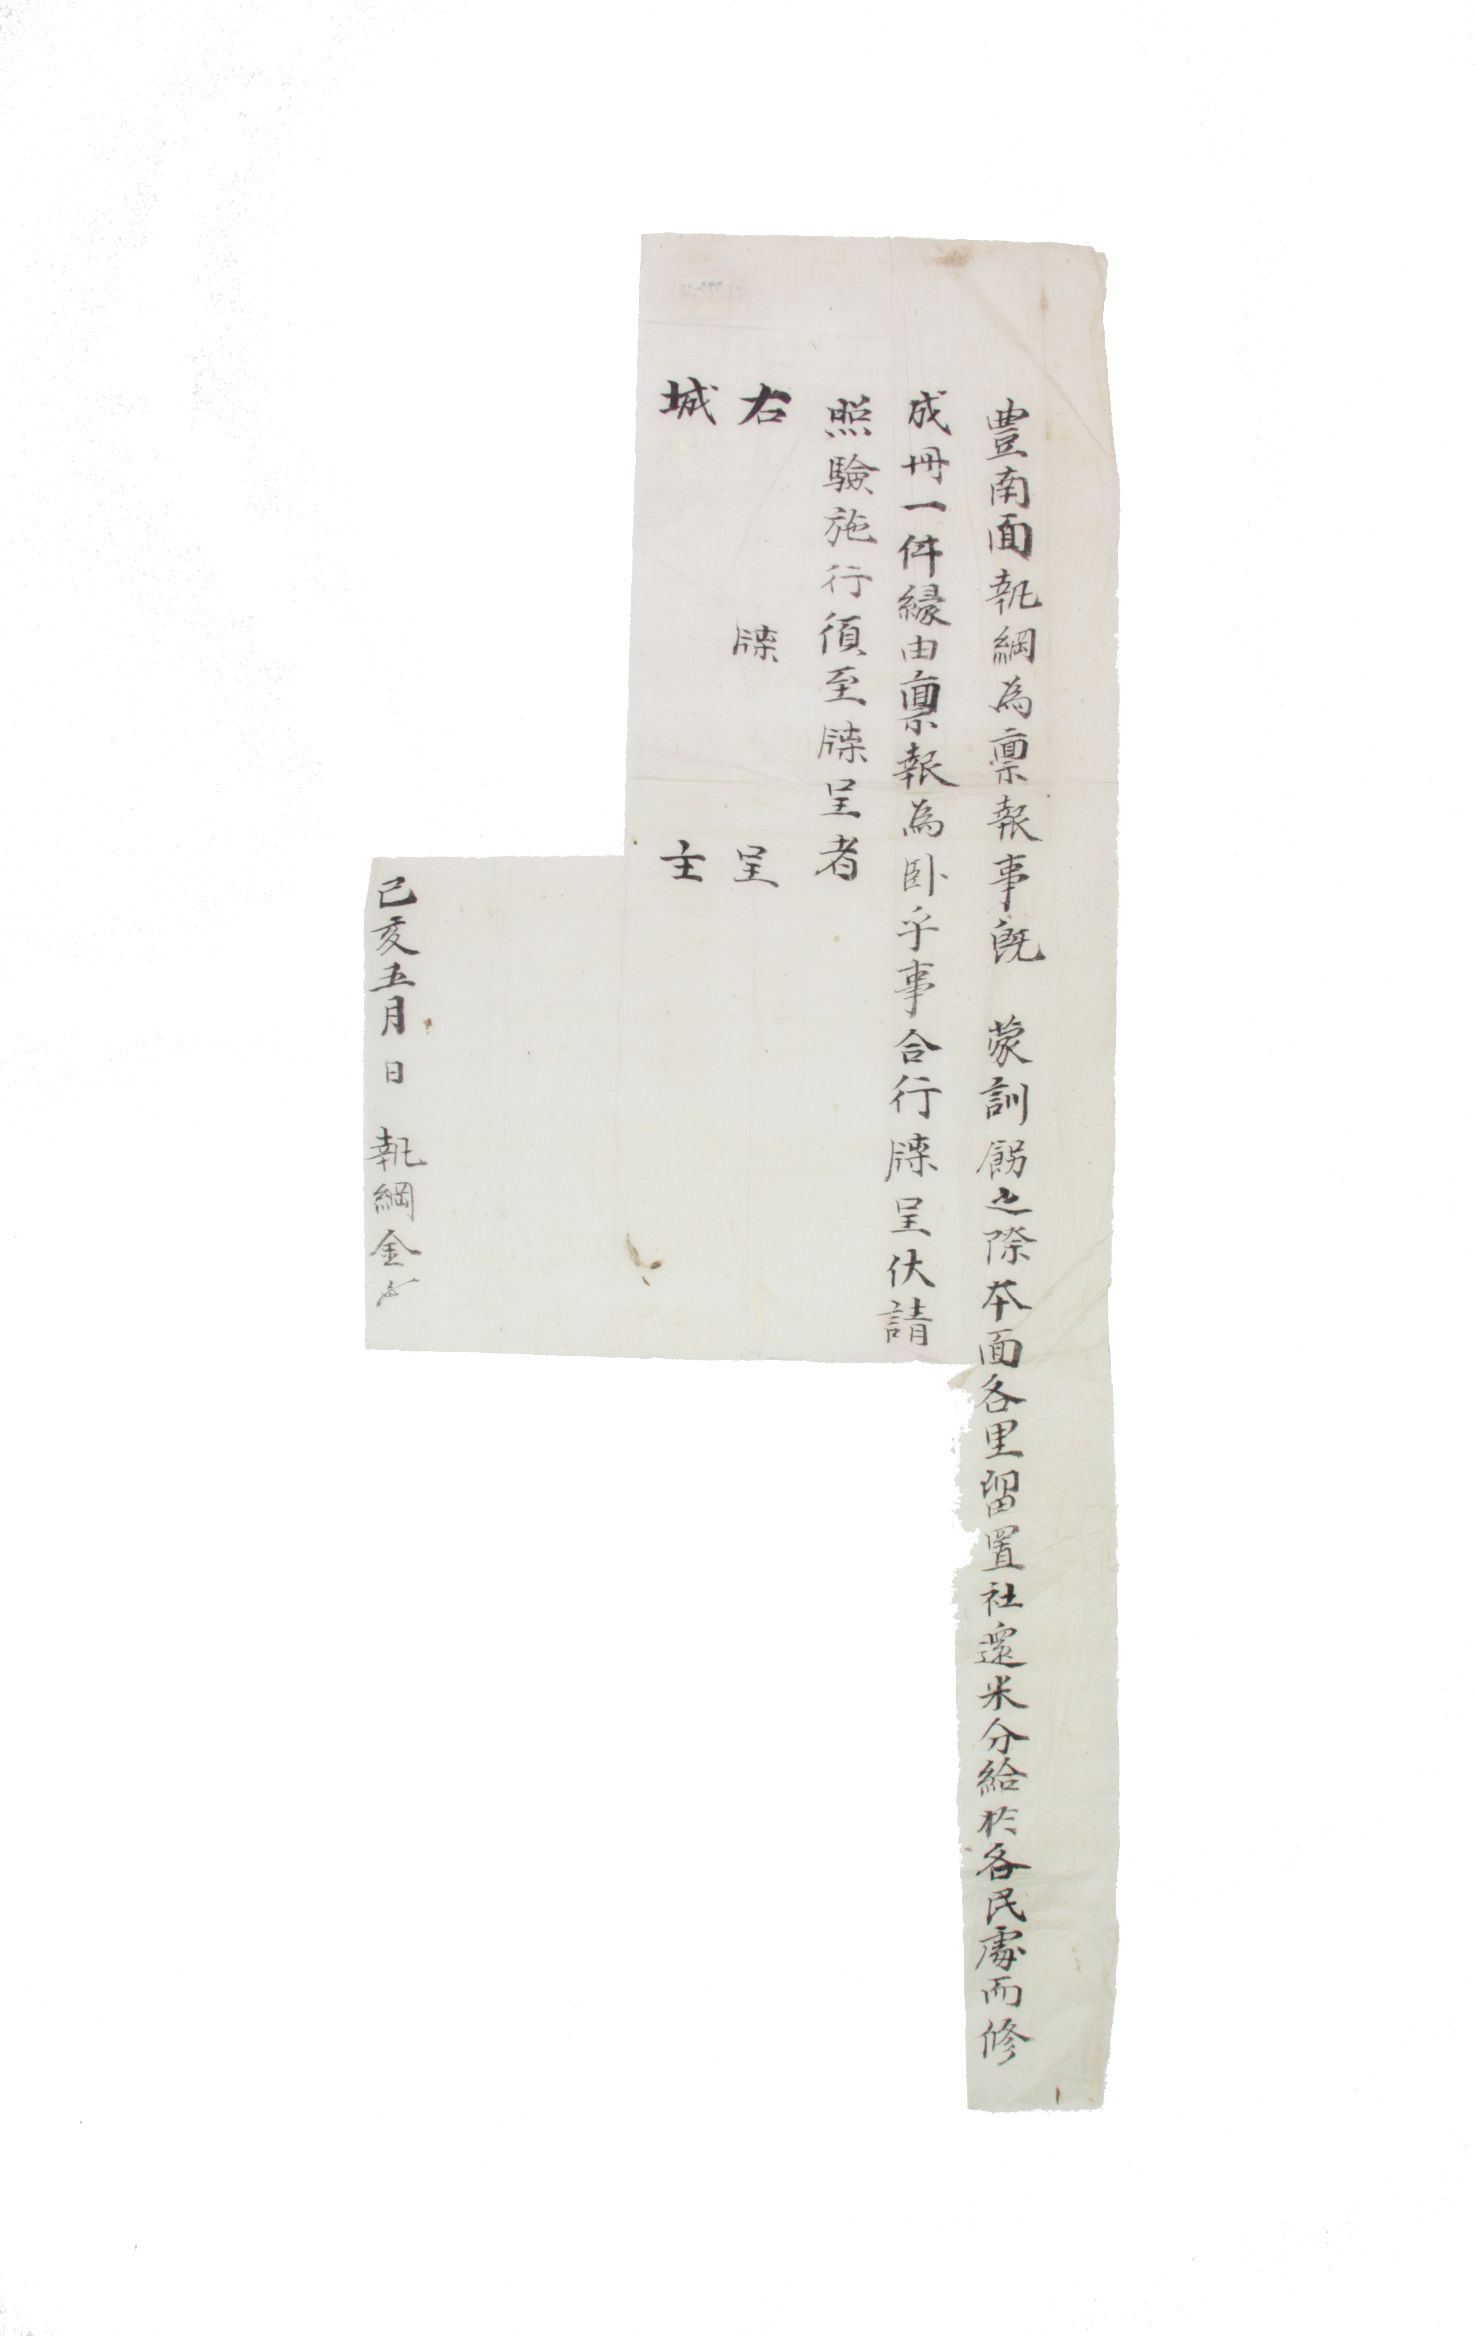 豊南面執綱為禀報事旣 蒙訓飭之際本面各里留置社還米分給於各民處而修
成冊一件緣由禀報為卧乎事合行牒呈伏請
照驗施行須至牒呈者
右 牒 呈
城 主
己亥五月 日 執綱金